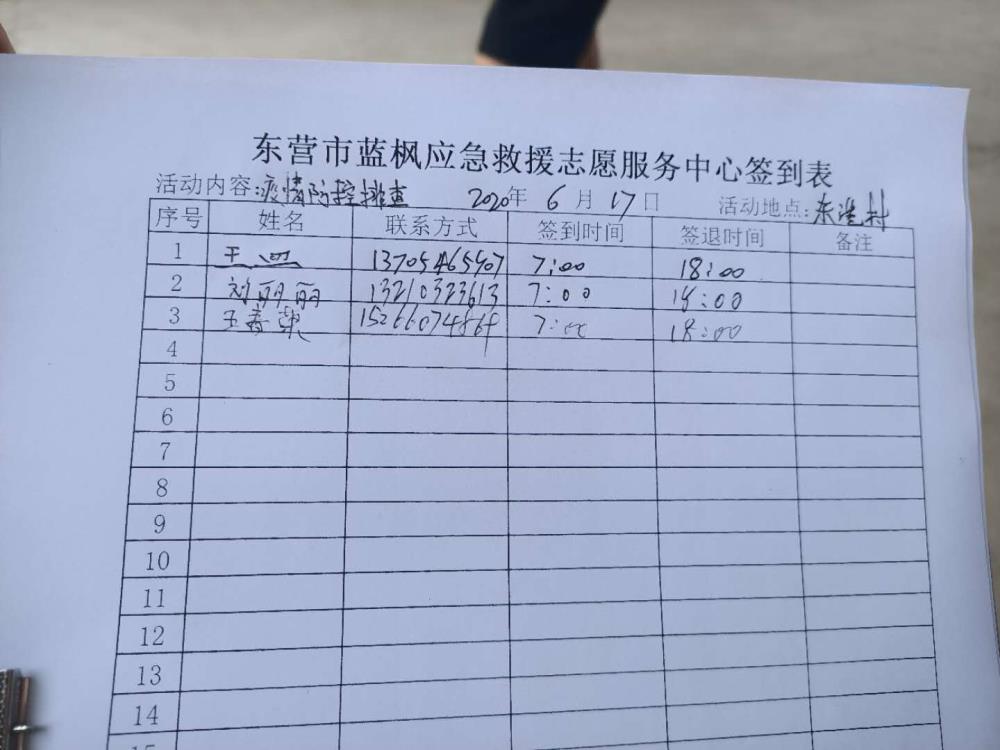 东营市蓝枫应急救援志愿服务中心签到表
活动内容:疫情防控排查 2020年 6月17日 活动地点:东洼村
序号 姓名 联系方式 签到时间 签退时间 备注
1 王 13705465907 7:00 18:00
2 刘丽丽 13210323613 7:00 18:00
3 王春荣 15266074868 7:00 18:00
4
5
6
7
8
9
10
11
12
13
14
15